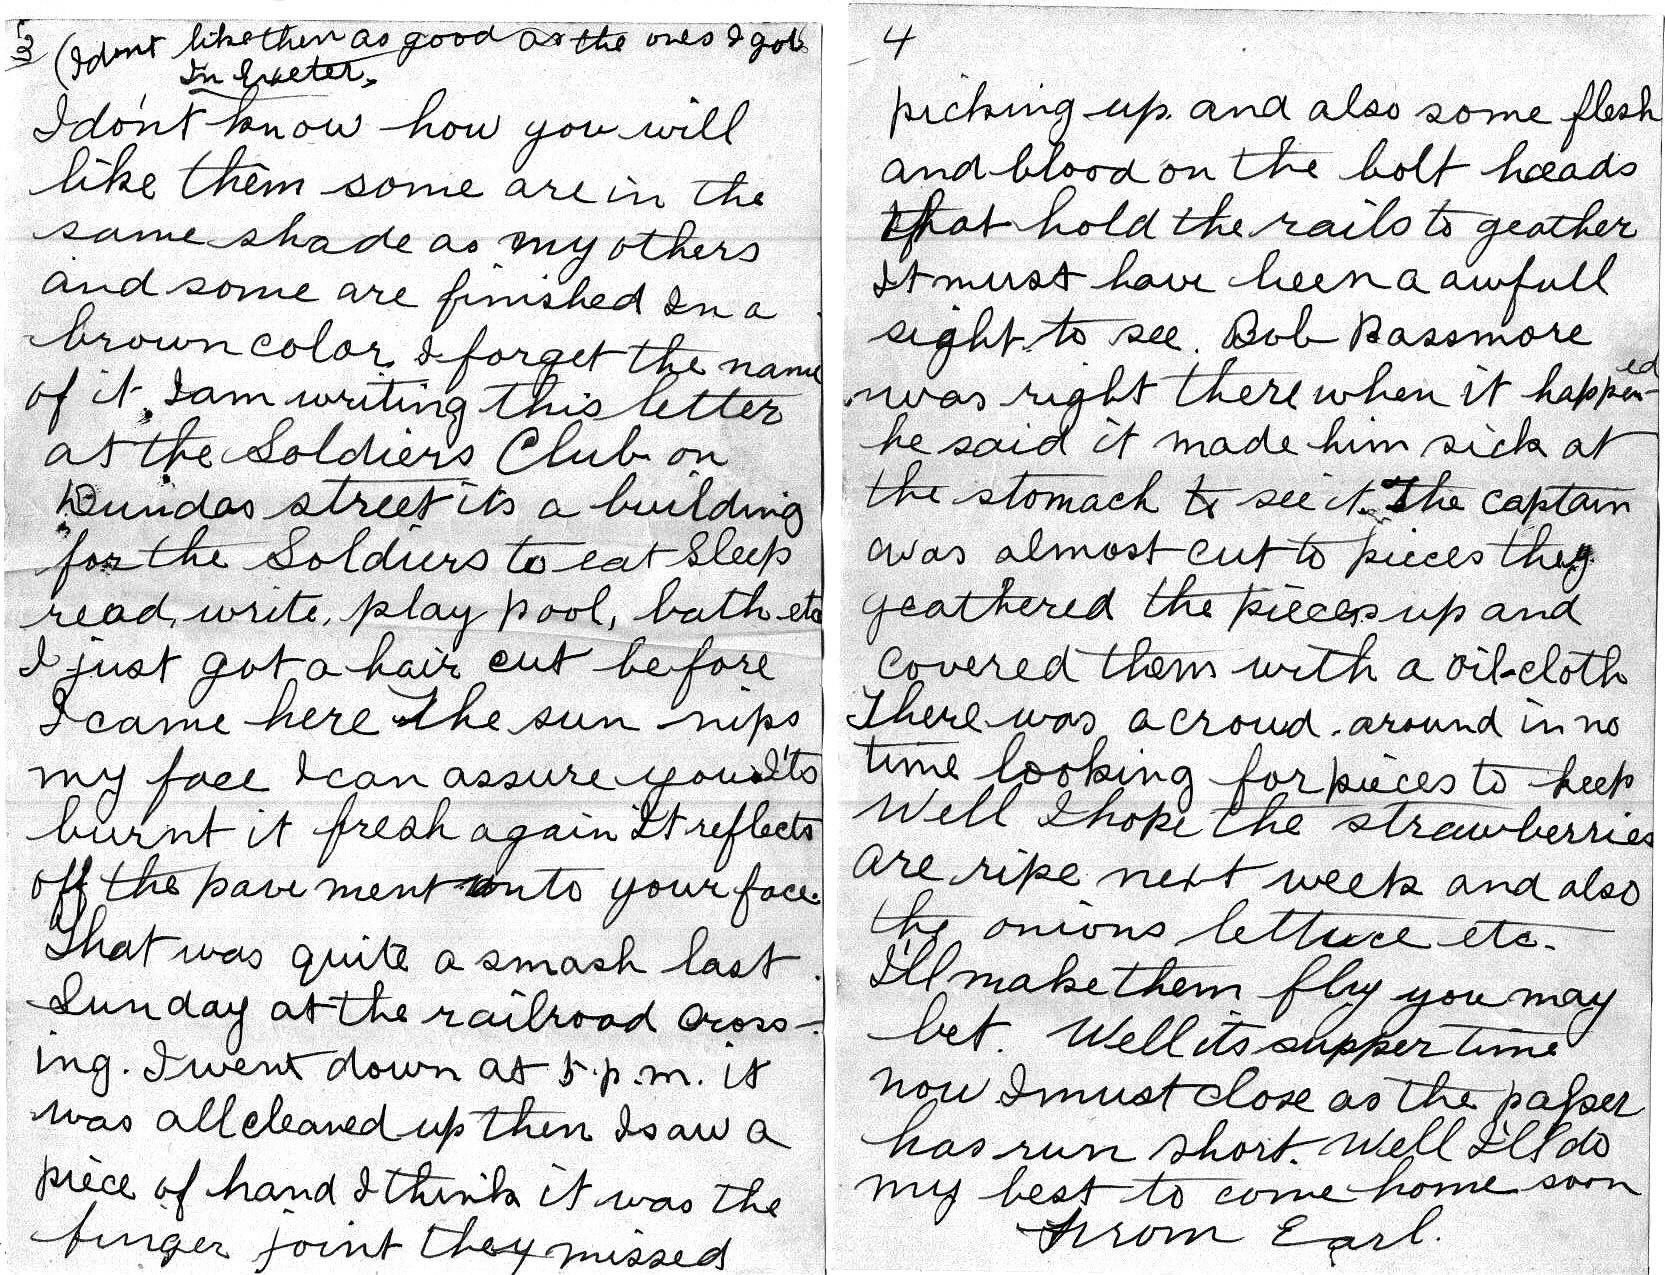 3
(I dont like them as good as the ones I got
In Exeter.
I don't know how you will
like them some are in the
same shade as my others
and some are finished In a
brown color. I forget the name
of it. I am writing this letter
at the Soldiers Club on
Dundas street its a building
for the Soldiers to eat Sleep
read, write, play pool, bath etc
I just got a hair cut before
I came here The sun nips
my face I can assure you It's
burnt it fresh again It reflects
off the pavement onto your face.
That was quite a smash last
Sunday at the railroad cross-
ing. I went down at 5.p.m. it
was all cleaned up then I saw a
piece of hand I think it was the
finger joint they missed
4
picking up. and also some flesh
and blood on the bolt heads
that hold the rails to geather
It must have been a awfull
sight to see. Bob Bassmore
was right there when it happened
he said it made him sick at
the stomach to see it. The captain
was almost cut to pieces they
geathered the pieces up and
covered them with a oil-cloth
There was a croud. around in no
time looking for pieces to keep
Well I hope the strawberries
are ripe next week and also
the onions lettuce etc.
I'll make them fly you may
bet. Well its supper time
now I must close as the papser
has run short. Well I'll do
my best to come home soon
From Earl.